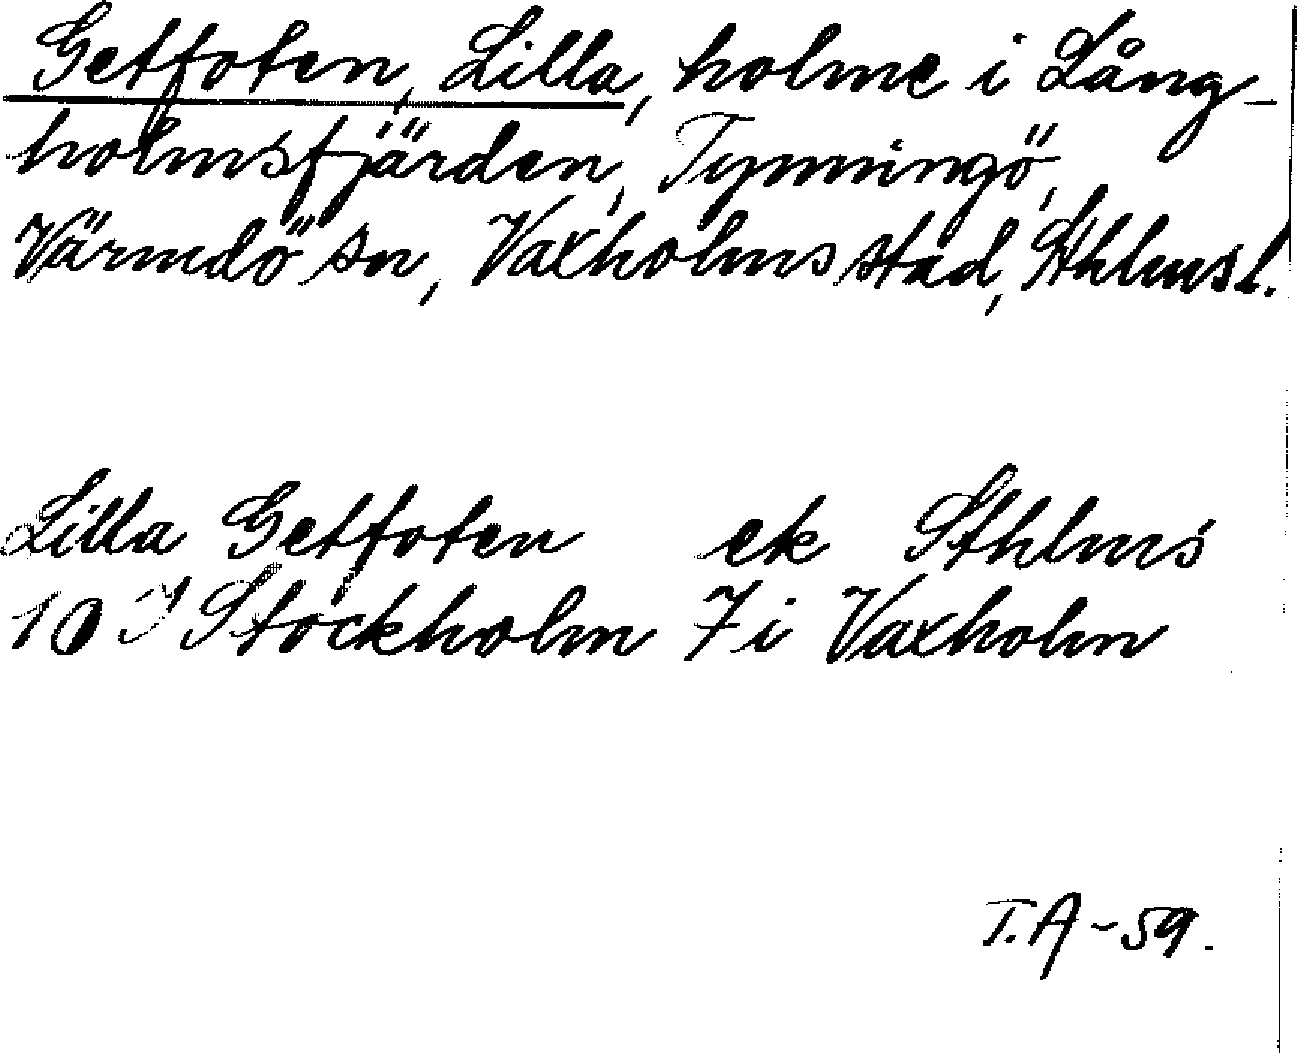 Getfoten, Lilla, holme i Lång-
holmsfjärden, Tynningö,
Värmdö sn, Vaxholms stad, Sthlms l.
Lilla Getfoten ek Sthlms
10 I Stockholm 7 i Vaxholm
T.A -59.